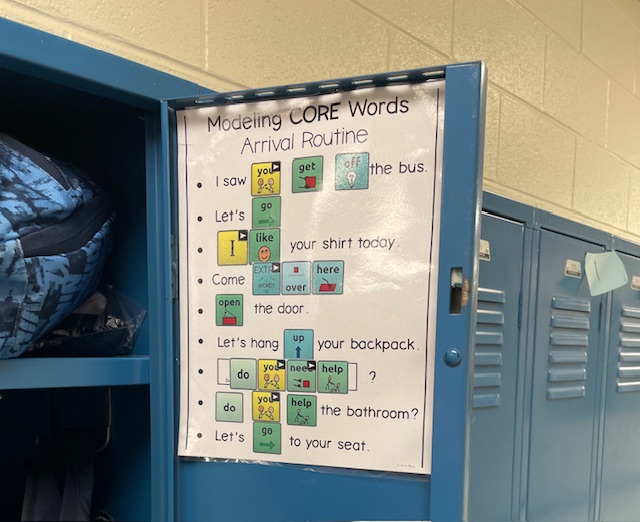 Modeling CORE Words
Arrival Routine
• I saw you get off the bus.
• Let's go
• I like your shirt today.
• Come EXTRA WORDS over here
• open the door.
• Let's hang up your backpack.
• do you need help ?
• do you help the bathroom?
• Let's go to your seat.